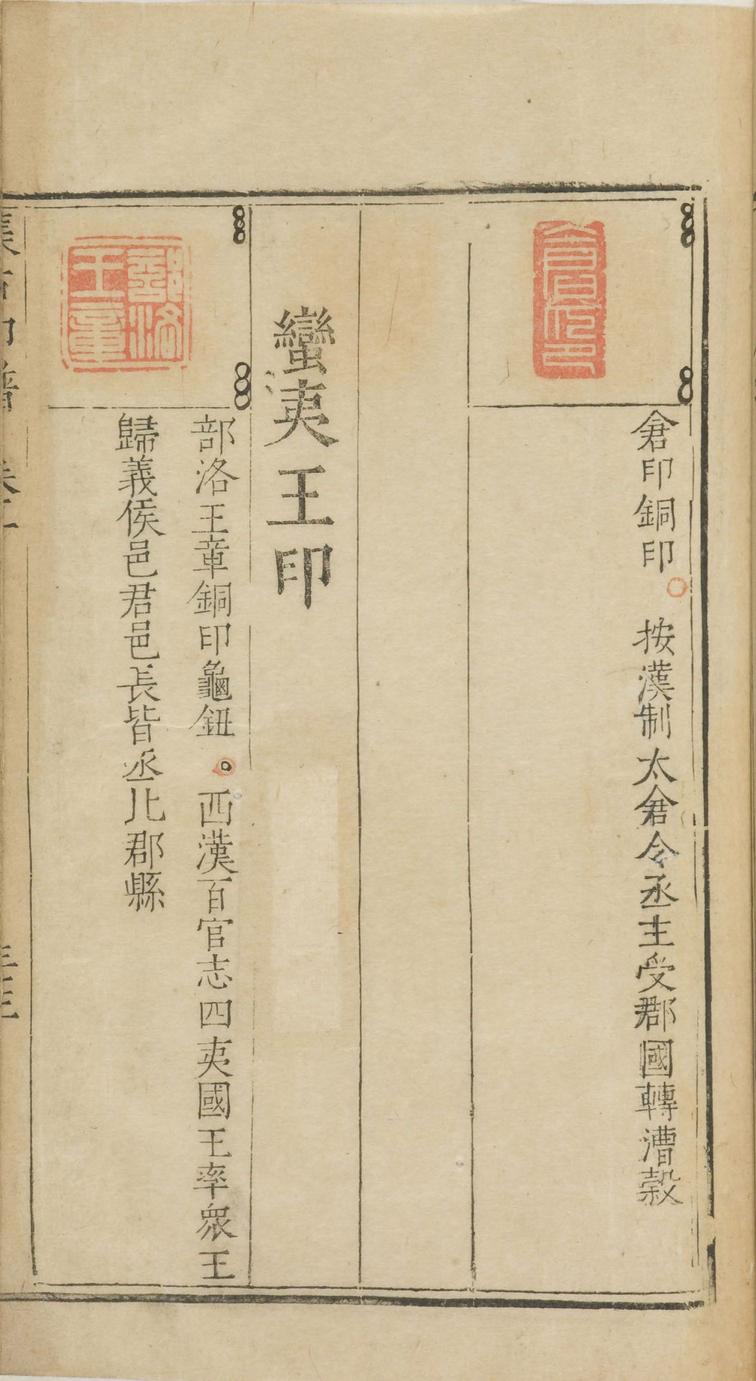 倉印
倉印銅印　按漢制太倉令丞主受郡國轉漕穀
蠻夷王印
部洛王章
部洛王章銅印龜鈕　西漢百官志四夷國王率衆王
歸義侯邑君邑長皆丞比郡縣
集古印譜